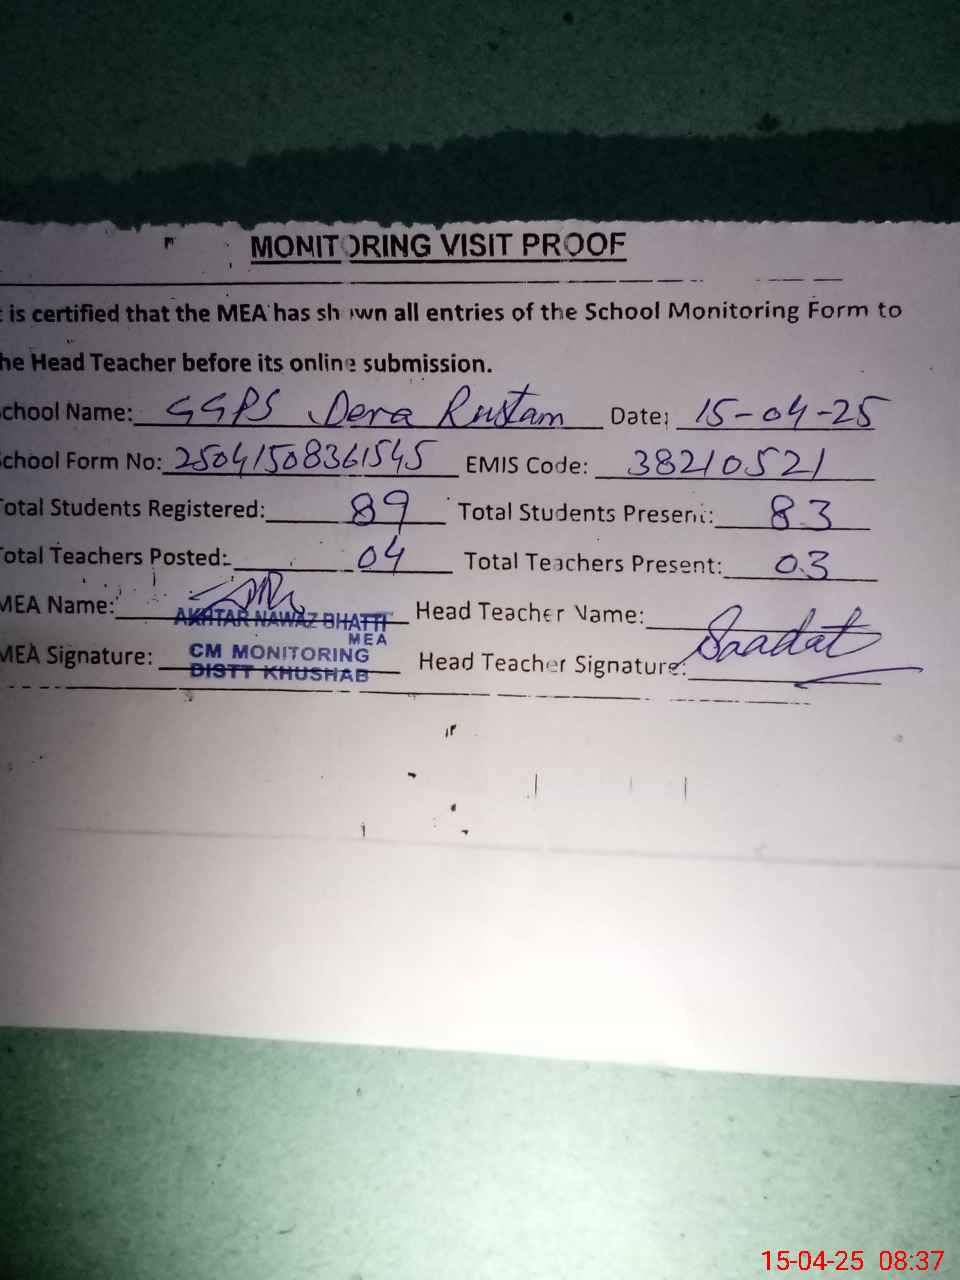 MONITORING VISIT PROOF
is certified that the MEA has shown all entries of the School Monitoring Form to
he Head Teacher before its online submission.
chool Name: GGPS Dera Rustam Date: 15-04-25
chool Form No: 25041508361545 EMIS Code: 38210521
otal Students Registered: 89 Total Students Present: 83
otal Teachers Posted: 04 Total Teachers Present: 03
MEA Name: AKHTAR NAWAZ BHATTI Head Teacher Name:
MEA
MEA Signature: CM MONITORING Head Teacher Signature: Saadat
DISTT KHUSHAB
15-04-25 08:37